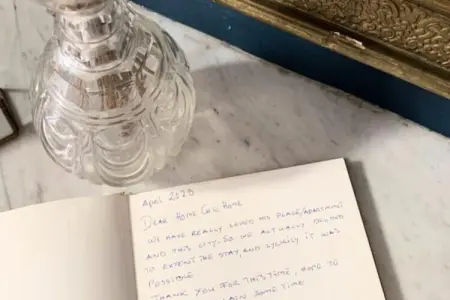 April 2023
DEAR HOME CHIC HOME
WE HAVE REALLY LOVED THIS PLACE/APARTMENT
AND THIS CITY. SO WE ACTUALLY DECIDED
TO EXTEND THE STAY, AND LUCKILY IT WAS
POSSIBLE
THANK YOU FOR THIS TIME, HOPE TO
AGAIN SOME TIME